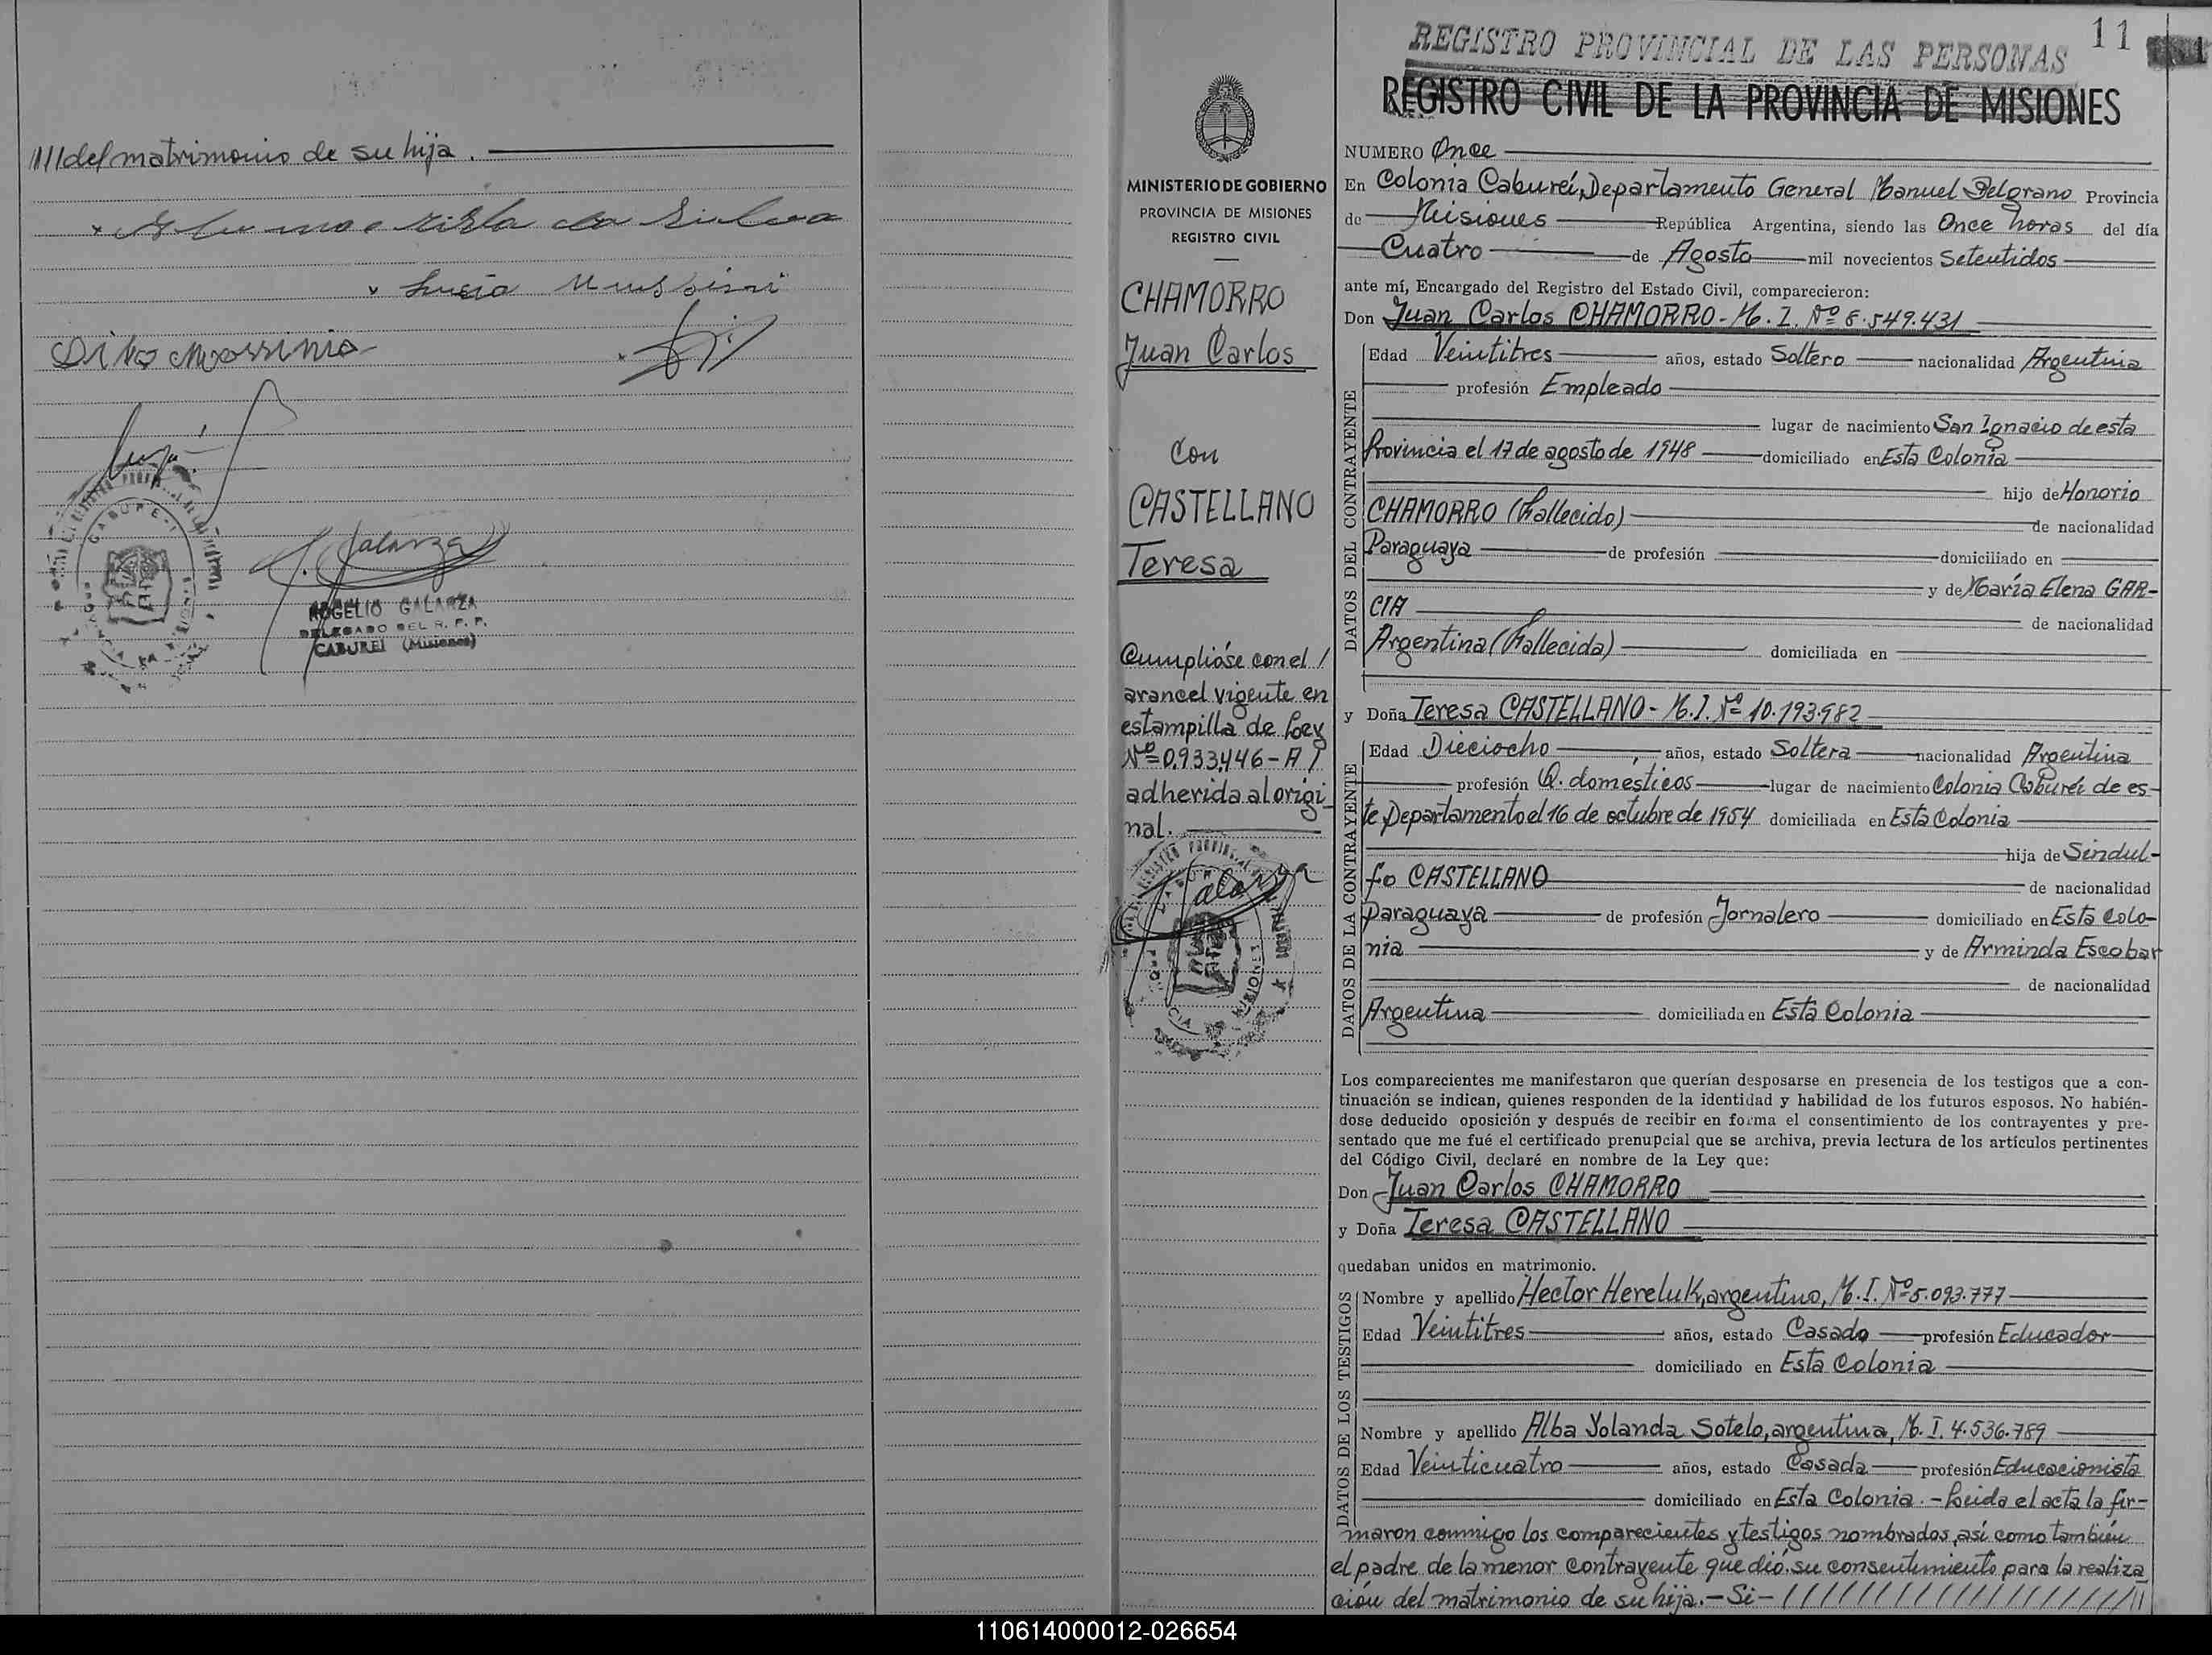 ////del matrimonio de su hija.
Lucía Mussini
ROGELIO GALARZA
DELEGADO DEL R. P. P.
CABUREI (Misiones)
MINISTERIO DE GOBIERNO
PROVINCIA DE MISIONES
REGISTRO CIVIL
CHAMORRO
Juan Carlos
Con
CASTELLANO
Teresa
Cumplióse con el /
arancel vigente en
estampilla de Ley
Nº 0.933446-A
adherida al origi-
nal.
Galarza
11
REGISTRO PROVINCIAL DE LAS PERSONAS
REGISTRO CIVIL DE LA PROVINCIA DE MISIONES
NUMERO Once
En Colonia Cabureí, Departamento General Manuel Belgrano Provincia
de Misiones República Argentina, siendo las Once horas del día
Cuatro de Agosto mil novecientos Setentidos
ante mí, Encargado del Registro del Estado Civil, comparecieron:
Don Juan Carlos CHAMORRO - M. I. Nº 8.549.431
DATOS DEL CONTRAYENTE
Edad Veintitres años, estado Soltero nacionalidad Argentina
profesión Empleado
lugar de nacimiento San Ignacio de esta
Provincia el 17 de agosto de 1948 domiciliado en Esta Colonia
hijo de Honorio
CHAMORRO (Fallecido) de nacionalidad
Paraguaya de profesión domiciliado en
y de María Elena GAR-
CIA de nacionalidad
Argentina (Fallecida) domiciliada en
y Doña Teresa CASTELLANO - M. I. Nº 10.193.982
DATOS DE LA CONTRAYENTE
Edad Dieciocho años, estado Soltera nacionalidad Argentina
profesión Q. domésticos lugar de nacimiento Colonia Cabureí de es-
te Departamento el 16 de octubre de 1954 domiciliada en Esta Colonia
hija de Sindul-
fo CASTELLANO de nacionalidad
Paraguaya de profesión Jornalero domiciliado en Esta Colo-
nia y de Arminda Escobar
de nacionalidad
Argentina domiciliada en Esta Colonia
Los comparecientes me manifestaron que querían desposarse en presencia de los testigos que a con-
tinuación se indican, quienes responden de la identidad y habilidad de los futuros esposos. No habién-
dose deducido oposición y después de recibir en forma el consentimiento de los contrayentes y pre-
sentado que me fué el certificado prenupcial que se archiva, previa lectura de los artículos pertinentes
del Código Civil, declaré en nombre de la Ley que:
Don Juan Carlos CHAMORRO
y Doña Teresa CASTELLANO
quedaban unidos en matrimonio.
DATOS DE LOS TESTIGOS
Nombre y apellido Hector Hereluk, argentino, M. I. Nº 5.093.777
Edad Veintitres años, estado Casado profesión Educador
domiciliado en Esta Colonia
Nombre y apellido Alba Yolanda Sotelo, argentina, M. I. 4.536.789
Edad Veinticuatro años, estado Casada profesión Educacionista
domiciliado en Esta Colonia.- Leida el acta la fir-
maron conmigo los comparecientes y testigos nombrados, así como también
el padre de la menor contrayente que dió su consentimiento para la realiza
ción del matrimonio de su hija.- Si - ////////////////////
110614000012-026654